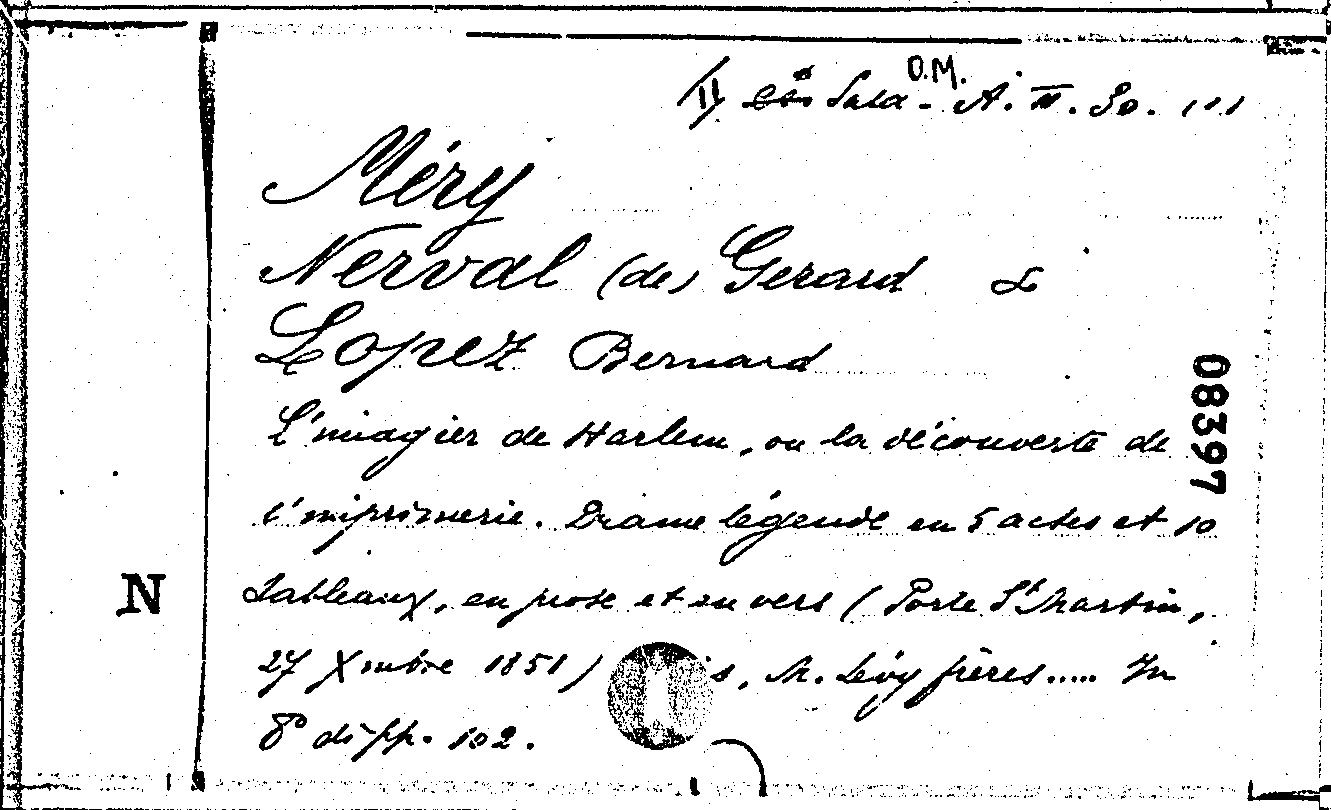 D.M.
Sala - A. III. 30.
Méry
Nerval (de) Gerard &
Lopez Bernard
L'imagier de Harlem, ou la découverte de
l'imprimerie. Drame légende en 5 actes et 10
tableaux, en prose et en vers (Porte St Martin,
27 Xmbre 1851) M. Lévy frères..... In
8° di pp. 102.
08397
N